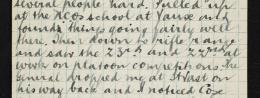 several people hard. Pulled up
at the NCOs school at Yause and
found things going fairly well
there. Then down to rifle range
and saw the 23rd and 22nd at
work on platoon competitions. The
General dropped me at St Vast on
his way back and I noticed Coxe